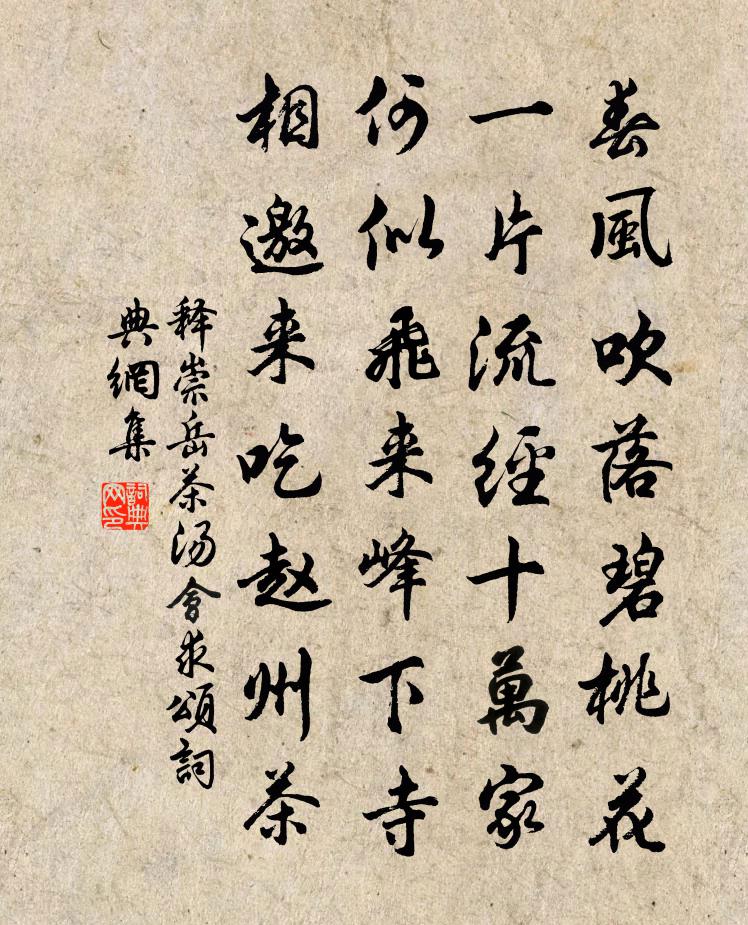 春風吹落碧桃花
一片流經十萬家
何似飛来峰下寺
相邀来吃赵州茶
释崇岳茶汤會求頌詞
典網集
詞典
网印